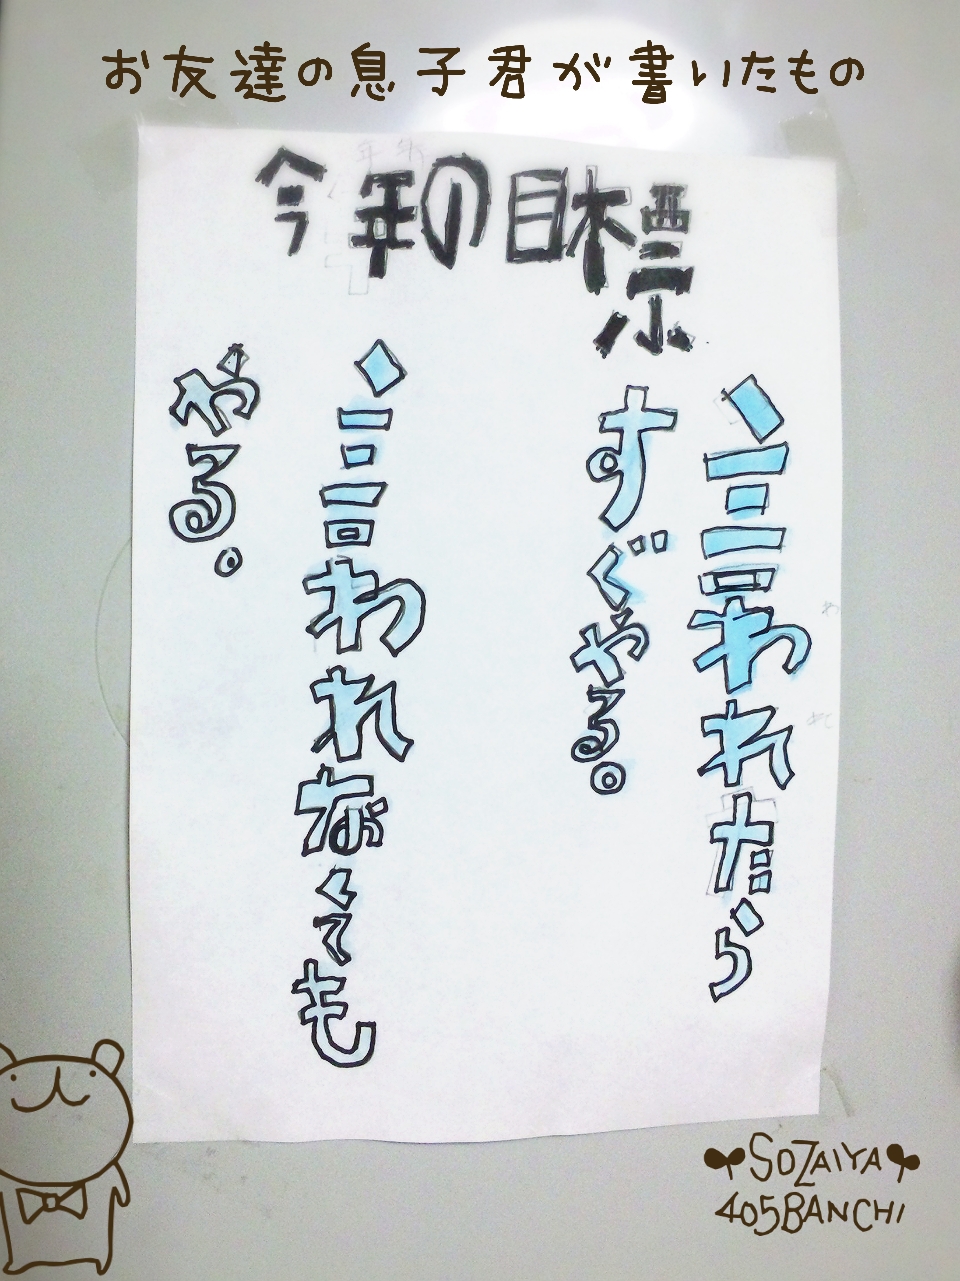 お友達の息子君が書いたもの
今年の目標
言われたら
すぐやる。
言われなくても
やる。
SOZAIYA
405BANCHI